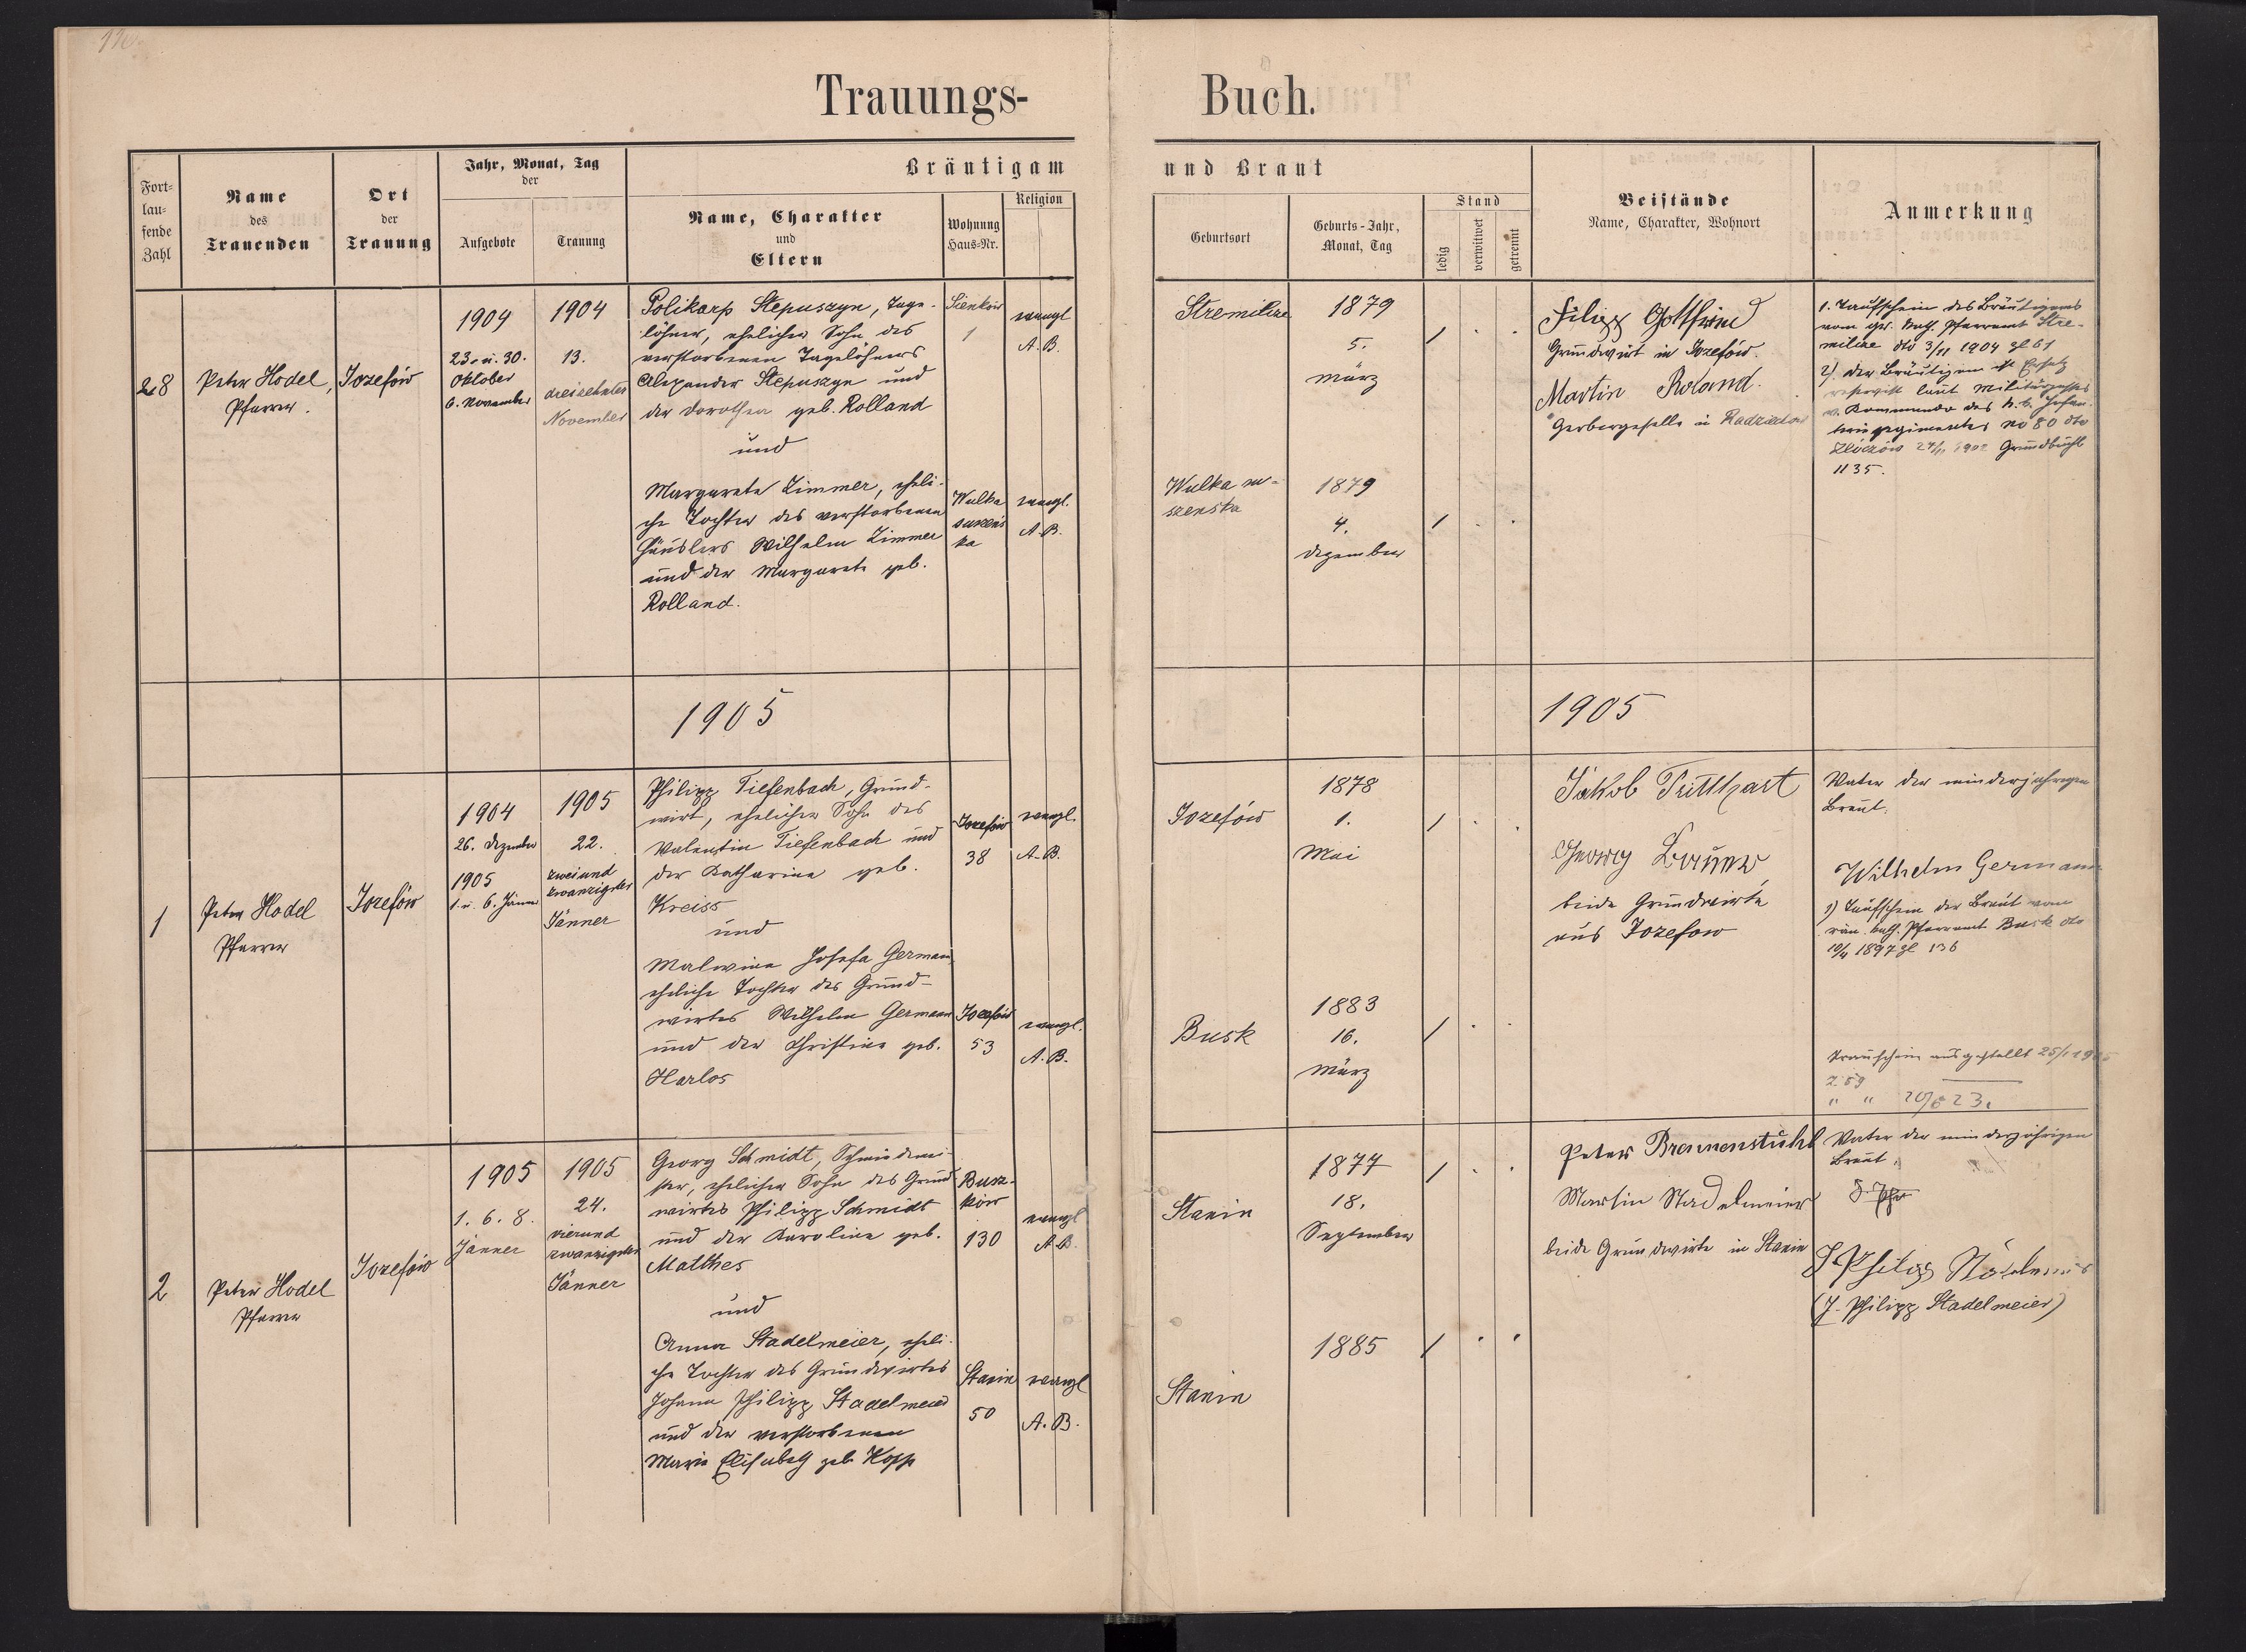 Trauungs-
Buch.
Fort-
lau-
fende
Zahl
Name
des
Trauenden
Ort
der
Trauung
Jahr, Monat, Tag
der
Aufgebote
Trauung
Bräutigam
Name, Charakter
und
Eltern
Wohnung
Haus-Nr.
Religion
und Braut
Geburtsort
Geburts-Jahr,
Monat, Tag
Stand
ledig
verwitwet
getrennt
Beistände
Name, Charakter, Wohnort
Anmerkung
28
Peter Hodel,
Pfarrer.
Jozefów
1904
23. u. 30.
Oktober
6. November
1904
13.
dreizehnter
November
Polikarp Stepuszyn, Tage-
löhner, ehelicher Sohn des
verstorbenen Tagelöhners
Alexander Stepuszyn und
der Dorothea geb. Rolland
und
Margareta Zimmer, eheli-
che Tochter des verstorbenen
Häuslers Wilhelm Zimmer
und der Margareta geb.
Rolland.
Sienków
1
evangl
A. B.
Wulka
suszeńs
ka
evangl.
A. B.
Stremilcze
1879
5.
März
Wulka su-
szeńska
1879
4.
Dezember
Filipp Gottfried
Grundwirt in Jozefów.
Martin Roland.
Gerbergeselle in
1. Taufschein des Bräutigams
vom gr. kath. Pfarramt Stre-
milcze dto 3/11 1904 Zl 61
2) Der Bräutigam ist Ersatz
reservist laut Militärpasses
v. Kommando des k. k. Infan-
terieregimentes No 80 dto
Złoczów 24/11 1902 Grundbuchbl
1135.
1905
1905
1
Peter Hodel
Pfarrer
Jozefów
1904
26. Dezember
1905
1. u. 6. Jänner
1905
22.
zweiund
zwanzigster
Jänner
Philipp Tiefenbach, Grund-
wirt, ehelicher Sohn des
Valentin Tiefenbach und
der Katharina geb.
Kreiss
und
Malwina Josefa German,
eheliche Tochter des Grund-
wirtes Wilhelm German
und der Christine geb.
Harlos
Jozefów
38
evangl.
A. B.
Jozefów
53
evangl.
A. B.
Jozefów
1878
1.
Mai
Busk
1883
16.
März
Jakob Tritthart
Georg
beide Grundwirte
aus Jozefow
Vater der minderjährigen
Braut.
Wilhelm Germann
1) Taufschein der Braut vom
röm. kath. Pfarramt Busk dto
10/4 1897 Zl 136
Trauschein ausgestellt 25/1 1905
Z. 59
" " 20/6 23.
2
Peter Hodel
Pfarrer
Jozefów
1905
1. 6. 8.
Jänner
1905
24.
vierund
zwanzigster
Jänner
Georg Schmidt, Schmiedmei-
ster, ehelicher Sohn des Grund-
wirtes Philipp Schmidt
und der Karolina geb.
Matthes
und
Anna Stadelmeier, eheli-
che Tochter des Grundwirtes
Johann Philipp Stadelmeier
und der verstorbenen
Maria Elisabeth geb Kopp
Busz-
ków
130
evangl
A B.
Stanin
50
evangl
A. B.
Stanin
1877
18.
September
Stanin
1885
Peter Bremenstuhl
Martin Stadelmeier
beide Grundwirte in Stanin
Vater der minderjährigen
Braut.
J Philipp
(J. Philipp Stadelmeier)